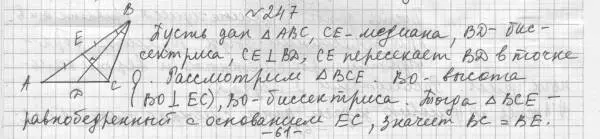 №247
B
Пусть дан △ABC, CE - медиана, BD - бис-
E
сектриса, CE⊥BD, CE пересекает BD в точке
A
C
O. Рассмотрим △BCE. BO - высота
D
(BO⊥EC), BO - биссектриса. Тогда △BCE -
равнобедренный с основанием EC, значит BC = BE.
-61-